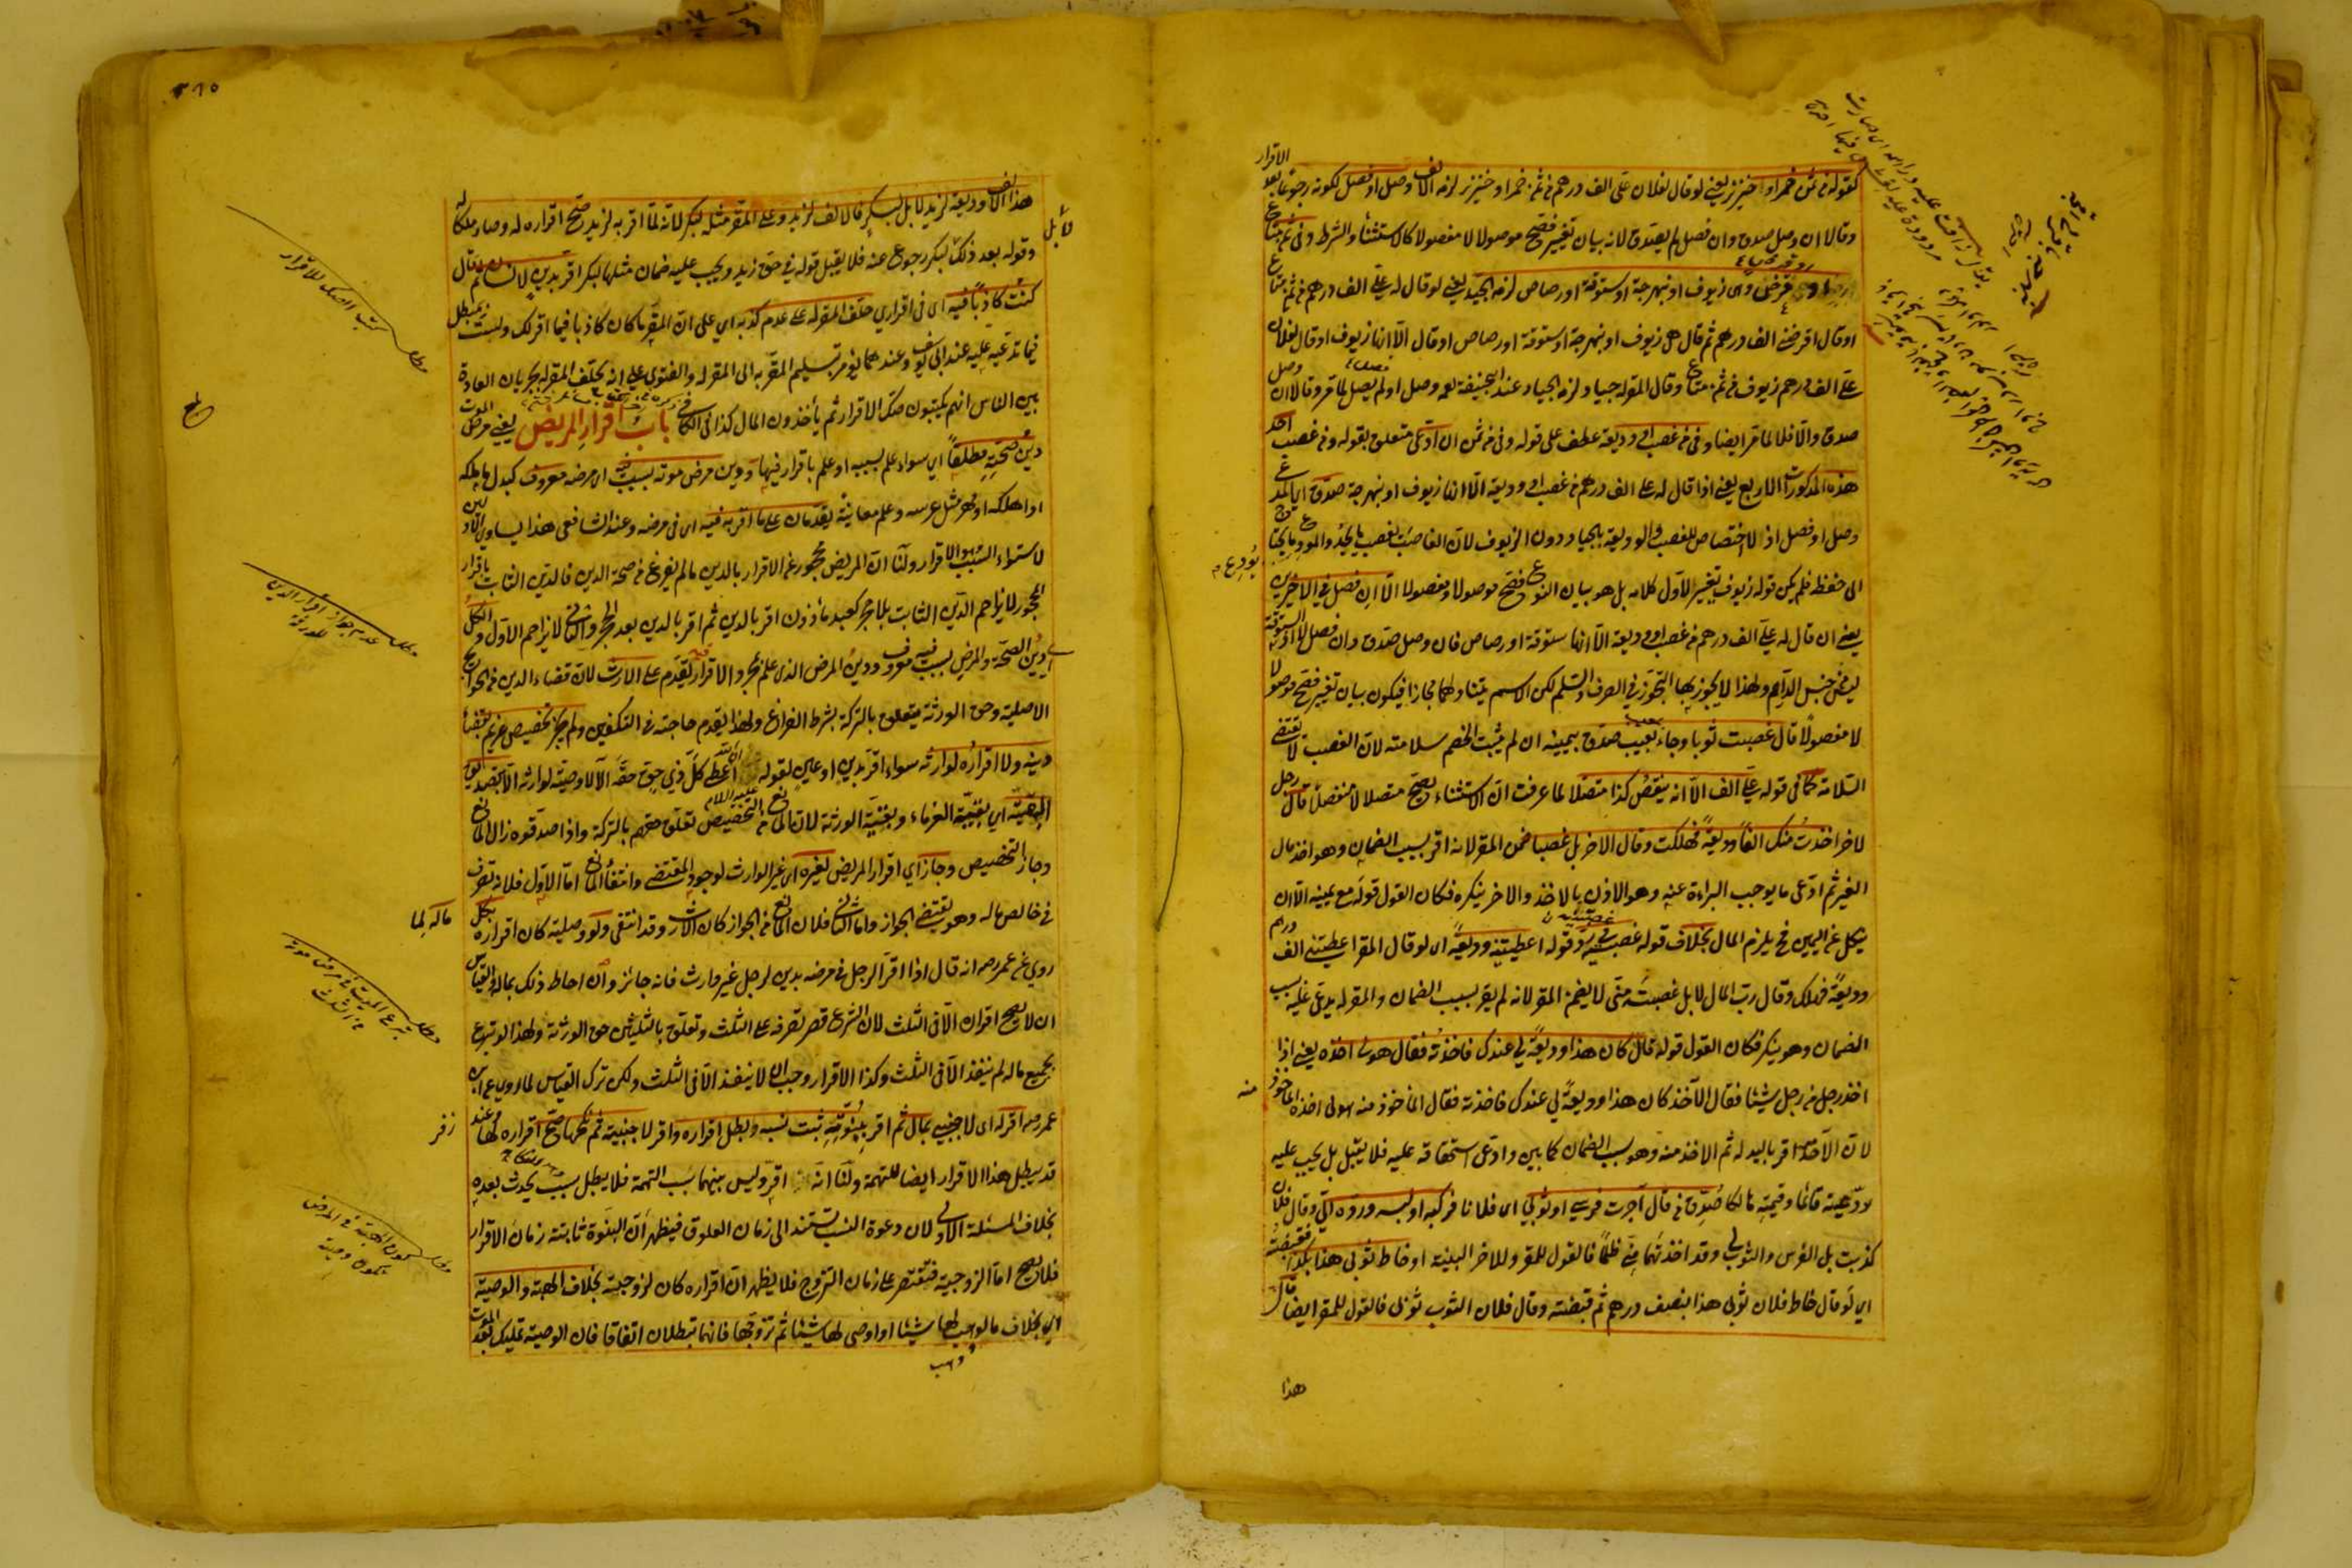 كقوله من ثمن خمر او خنزير يعني لو قال لفلان علي الف درهم من ثمن خمر او خنزير لزمه الالف وصل او فصل لكونه رجوعا بعد الاقرار
وقالا ان وصل صدق وان فصل لم يصدق لانه بيان تغيير فصح موصولا لا مفصولا كالاستثناء والشرط وفي ثمن متاع
او قرض وهي زيوف او نبهرجة او ستوقة او رصاص لزمه الجيد يعني لو قال له علي الف درهم من ثمن متاع
او قال اقرضني الف درهم ثم قال هي زيوف او نبهرجة او ستوقة او رصاص او قال الا انها زيوف او قال لفلان
علي الف درهم زيوف من ثمن متاع وقال المقر له جياد لزمه الجياد عند ابي حنيفة رحمه وصل او لم يصل لما مر وقالا ان وصل
صدق والا فلا لما مر ايضا وفي من غصب او وديعة عطف على قوله وفي من ثمن ان ادعى متعلق بقوله وفي من غصب احد
هذه المذكورات الاربع يعني اذا قال له علي الف درهم من غصب او وديعة الا انها زيوف او نبهرجة صدق اي المدعي
وصل او فصل اذ لا اختصاص للغصب والوديعة بالجياد دون الزيوف لان الغاصب يغصب ما يجد والمودع ما يحتاج
الى حفظه فلم يكن قوله زيوف تغيير الاول كلامه بل هو بيان النوع فصح موصولا ومفصولا الا ان فصل في الاخيرين
يعني ان قال له علي الف درهم من غصب او وديعة الا انها ستوقة او رصاص فان وصل صدق وان فصل لا اذ الستوقة
ليس من جنس الدراهم ولهذا لا يجوز بها التجوز في الصرف والسلم لكن الاسم يتناولهما مجازا فيكون بيان تغيير فصح موصولا
لا مفصولا قال غصبت ثوبا وجاء بمعيب صدق بيمينه ان لم يثبت الخصم سلامته لان الغصب لا تقتضي
السلامة كما في قوله علي الف الا انه ينقص كذا متصلا لما عرفت ان الاستثناء يصح متصلا لا منفصلا قال رجل
لاخر اخذت منك الفا وديعة فهلكت وقال الاخر بل غصبا ضمن المقر لانه اقر بسبب الضمان وهو اخذ مال
الغير ثم ادعى ما يوجب البراءة عنه وهو الاذن بالاخذ والاخر ينكره فكان القول قوله مع يمينه الا ان
ينكل عن اليمين فح يلزم المال بخلاف قوله غصبته في رد قوله اعطيتنيه وديعة اي لو قال المقر اعطيتني الف درهم
وديعة فهلك وقال رب المال لا بل غصبته مني لا يضمن المقر لانه لم يقر بسبب الضمان والمقر له يدعي عليه سبب
الضمان وهو ينكر فكان القول قوله قال كان هذا وديعة لي عندك فاخذته فقال هو لي اخذه يعني اذا
اخذ رجل من رجل شيئا فقال الآخذ كان هذا وديعة لي عندك فاخذته فقال المأخوذ منه هو لي اخذه المأخوذ منه
لان الآخذ اقر باليد له ثم الاخذ منه وهو سبب الضمان كما بين وادعى استحقاقه عليه فلا يقبل بل يجب عليه
رد عينه قائما وقيمته هالكا صدق من قال آجرت فرسي او ثوبي اي فلانا فركبه او لبسه ورده الي وقال فلان
كذبت بل الفرس والثوب لي وقد اخذتهما مني ظلما فالقول للمقر وللاخر البينة او خاط ثوبي هذا بكذا فقبضته
اي لو قال خاط فلان ثوبي هذا بنصف درهم ثم قبضته وقال فلان الثوب ثوبي فالقول للمقر ايضا قال
هذا
٣٦٥
هذا الالف وديعة لزيد لا بل لبكر فالالف لزيد وعلى المقر مثله لبكر لانه لما اقر به لزيد صح اقراره له وصار ملكا له
وقوله بعد ذلك لبكر رجوع عنه فلا يقبل قوله في حق زيد ويجب عليه ضمان مثلها لبكر اقر بدين لانسان ثم قال
كنت كاذبا فيه اي في اقراري حلف المقر له على عدم كذبه اي على ان المقر ما كان كاذبا فيما اقر لك ولست بمبطل
فيما تدعيه عليه عند ابي يوسف وعندهما يؤمر بتسليم المقر به الى المقر له والفتوى على انه يحلف المقر له بجريان العادة
بين الناس انهم يكتبون صك الاقرار ثم يأخذون المال كذا في الكافي باب اقرار المريض يعني مرض الموت
دين صحته مطلقا اي سواء علم بسببه او علم باقراره فيها ودين مرض موته بسبب فيه اي مرضه معروف كبدل ما ملكه
او اهلكه او مهر مثل عرسه وعلم معاينة يقدمان على ما اقر به فيه اي في مرضه وعند الشافعي هذا يساوي الاولين
لاستواء السبب وهو الاقرار ولنا ان المريض محجور عن الاقرار بالدين ما لم يفرغ من صحة الدين فالدين الثابت باقرار
المحجور لا يزاحم الدين الثابت بلا حجر كعبد مأذون اقر بالدين ثم اقر بالدين بعد الحجر والثاني لا يزاحم الاول والكل
اي دين الصحة والمرض بسبب فيه معروف ودين المرض الذي علم بمجرد الاقرار يقدم على الارث لان قضاء الدين من الحوائج
الاصلية وحق الورثة يتعلق بالتركة بشرط الفراغ ولهذا يقدم حاجته في التكفين ولم يجز تخصيص غريم بقضاء
دينه ولا اقراره لوارثه سواء اقر بدين او عين لقوله عليه السلام ان الله اعطى كل ذي حق حقه الا لا وصية لوارث الا بتصديق
البقية اي بقية الغرماء وبقية الورثة لان المانع من التخصيص تعلق حقهم بالتركة واذا صدقوه زال المانع
وجاز التخصيص وجاز اي اقرار المريض لغيره اي غير الوارث لوجود المقتضي وانتفاء المانع اما الاول فلانه تصرف
في خالص ماله وهو يقتضي الجواز واما الثاني فلان المانع من الجواز كان الارث وقد انتفى ولو وصلية كان اقراره بكل ماله لما
روي عن عمر رضه انه قال اذا اقر الرجل في مرضه بدين لرجل غير وارث فانه جائز وان احاط ذلك بماله والقياس
ان لا يصح اقراره الا في الثلث لان الشرع قصر تصرفه على الثلث وتعلق بالثلثين حق الورثة ولهذا لو تبرع
بجميع ماله لم ينفذ الا في الثلث وكذا الاقرار وجب ان لا ينفذ الا في الثلث ولكن ترك القياس لما روي عن ابن
عمر رضه اقر له اي لاجنبي بمال ثم اقر ببنوته ثبت نسبه وبطل اقراره واقر لاجنبية ثم نكحها صح اقراره لها وعند زفر
قد يبطل هذا الاقرار ايضا للتهمة ولنا انه اقر وليس بينهما سبب التهمة فلا يبطل بسبب يحدث بعده
بخلاف المسئلة الاولى لان دعوة النسب تستند الى زمان العلوق فيظهر ان البنوة ثابتة زمان الاقرار
فلا يصح اما الزوجية فتقتصر على زمان التزوج فلا يظهر ان اقراره كان لزوجته بخلاف الهبة والوصية
اي بخلاف ما لو وهب لها شيئا او اوصى لها شيئا ثم تزوجها فانهما تبطلان اتفاقا فان الوصية تمليك بعد الموت
مطلب كتب الصك للاقرار
مطلب عدم جواز اقرار الدين للورثة
مطلب تبرع الميت في مرض موته من الثلث
مطلب كون الهبة في المرض تكون وصية